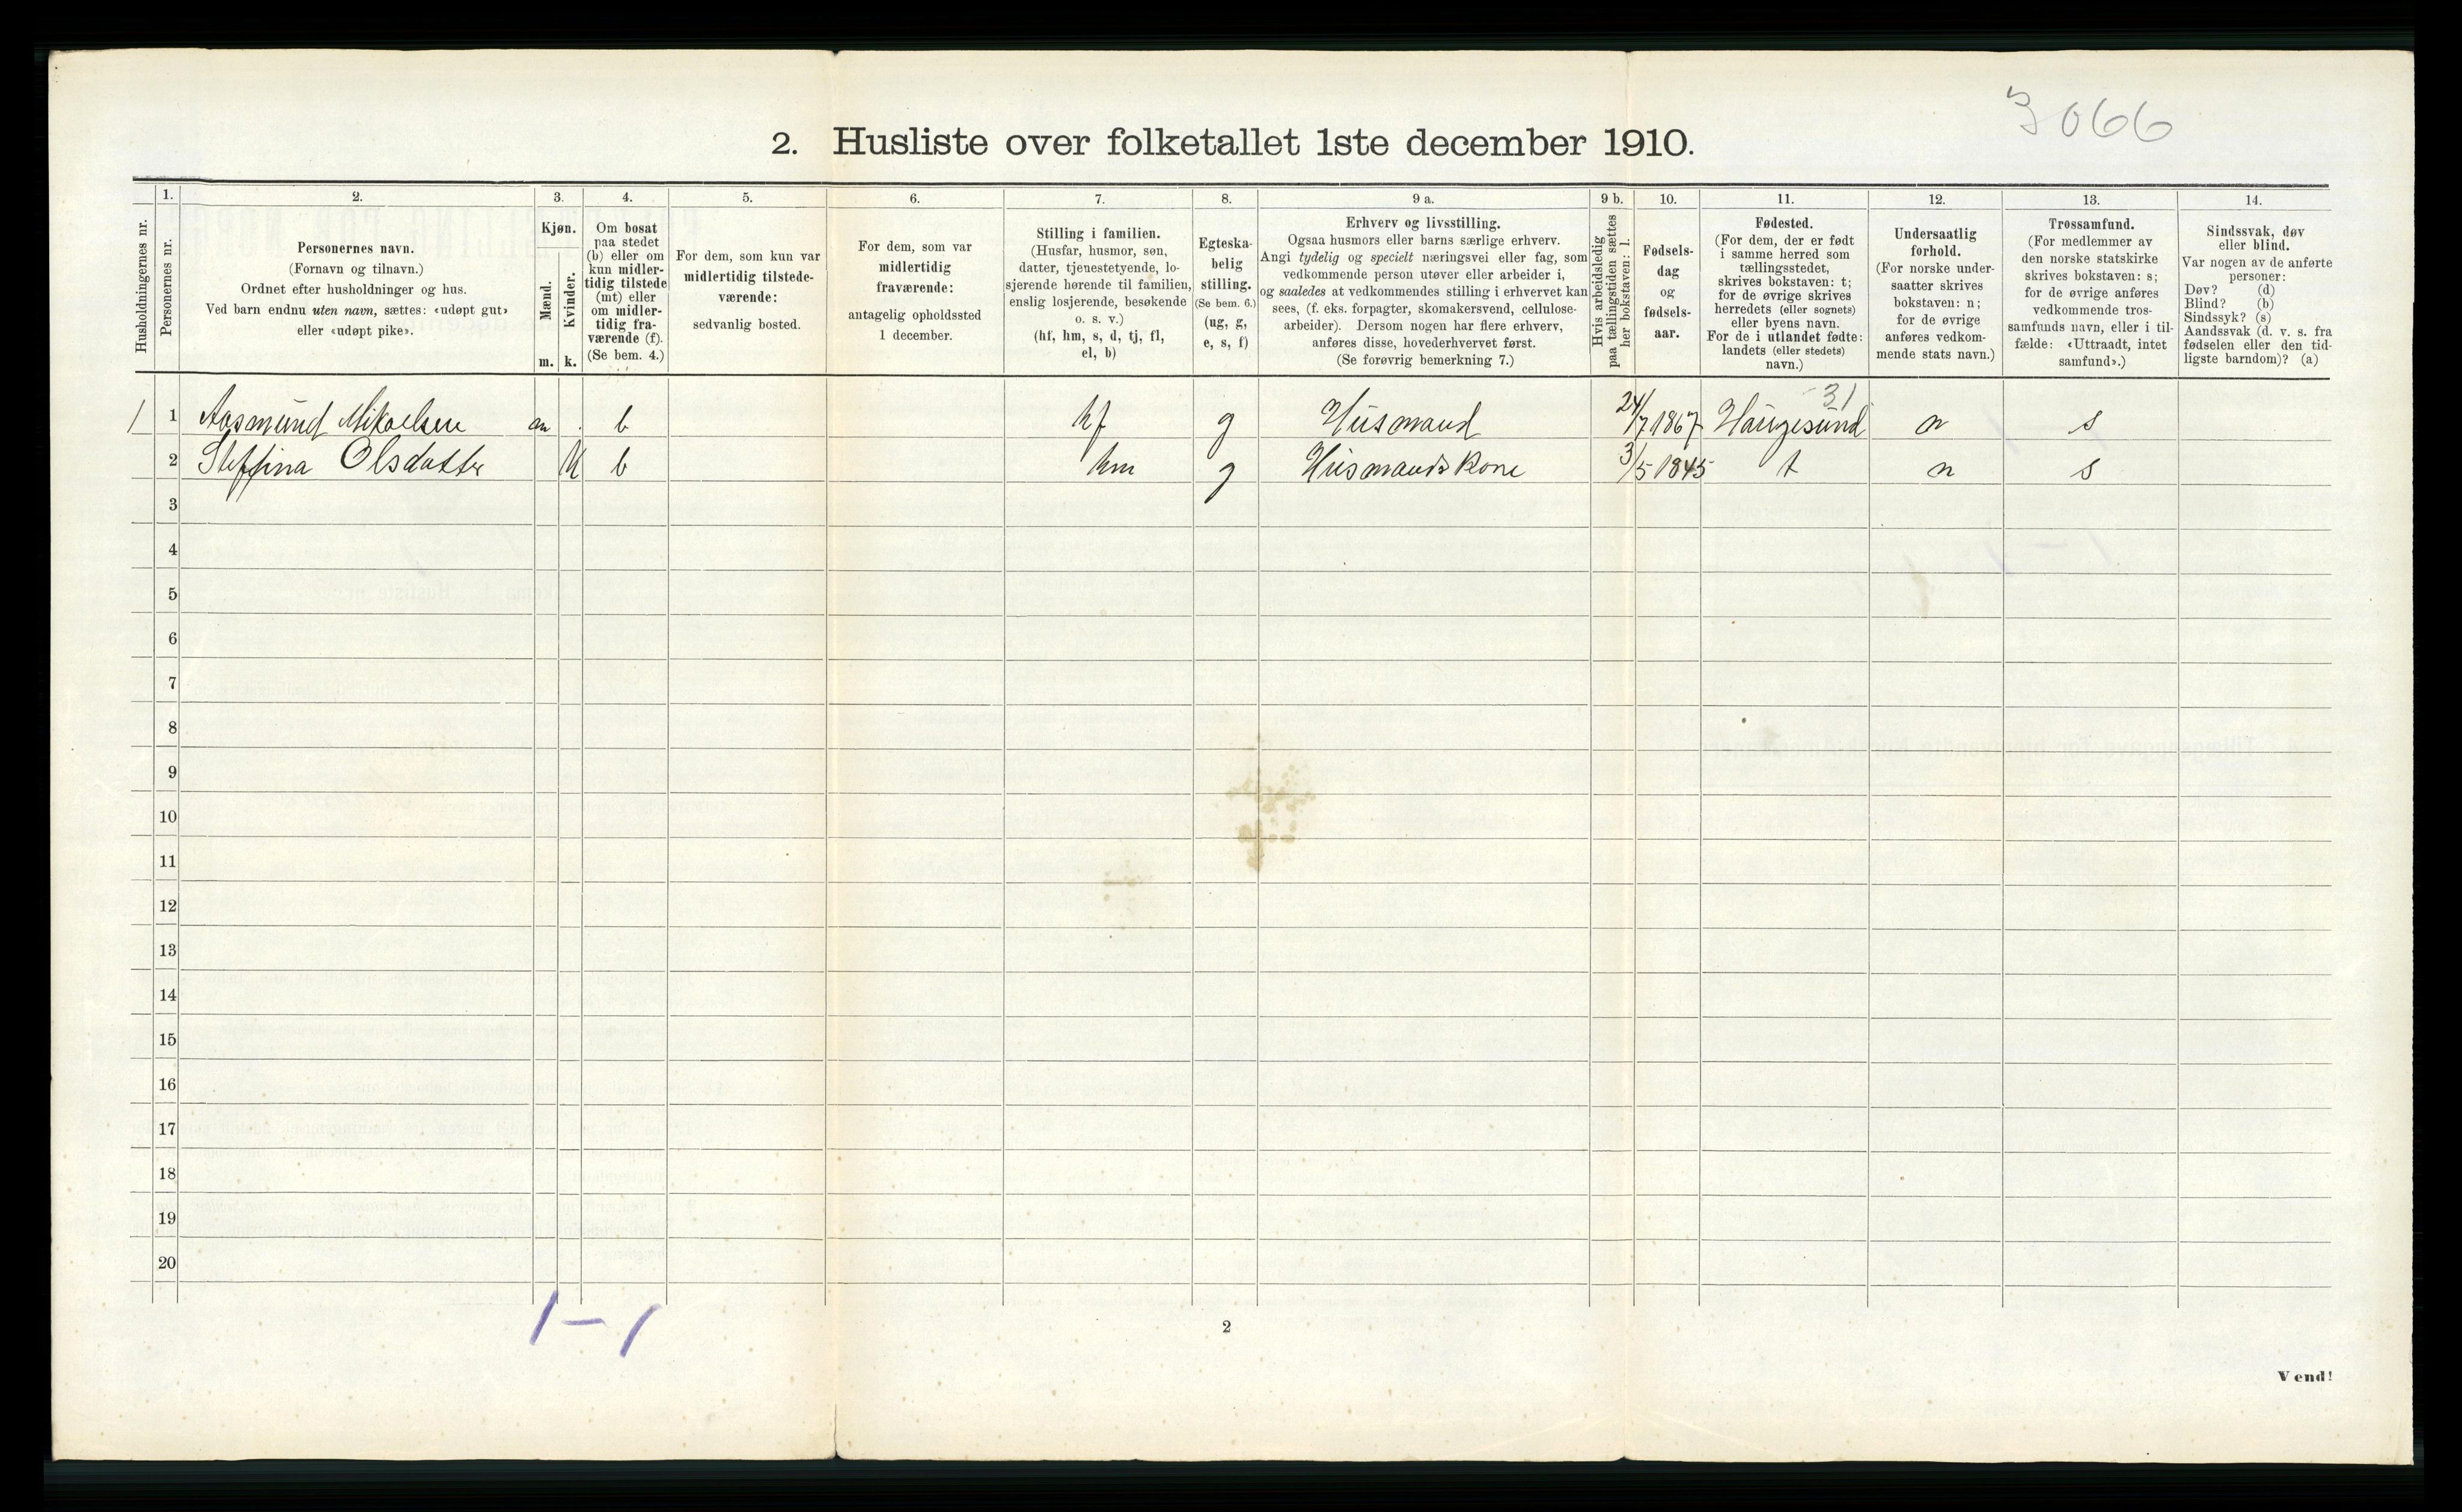 3066
2. Husliste over folketallet 1ste december 1910.
Husholdningernes nr.
1.
Personernes nr.
2.
Personernes navn.
(Fornavn og tilnavn.)
Ordnet efter husholdninger og hus.
Ved barn endnu uten navn, sættes: «udøpt gut»
eller «udøpt pike».
3.
Kjøn.
Mænd.
m.
Kvinder.
k.
4.
Om bosat
paa stedet
(b) eller om
kun midler-
tidig tilstede
(mt) eller
om midler-
tidig fra-
værende (f).
(Se bem. 4.)
5.
For dem, som kun var
midlertidig tilstede-
værende:
sedvanlig bosted.
6.
For dem, som var
midlertidig
fraværende:
antagelig opholdssted
1 december.
7.
Stilling i familien.
(Husfar, husmor, søn,
datter, tjenestetyende, lo-
sjerende hørende til familien,
enslig losjerende, besøkende
o. s. v.)
(hf, hm, s, d, tj, fl,
el, b)
8.
Egteska-
belig
stilling.
(Se bem. 6.)
(ug, g,
e, s, f)
9 a.
Erhverv og livsstilling.
Ogsaa husmors eller barns særlige erhverv.
Angi tydelig og specielt næringsvei eller fag, som
vedkommende person utøver eller arbeider i,
og saaledes at vedkommendes stilling i erhvervet kan
sees, (f. eks. forpagter, skomakersvend, cellulose-
arbeider). Dersom nogen har flere erhverv,
anføres disse, hovederhvervet først.
(Se forøvrig bemerkning 7.)
9 b.
Hvis arbeidsledig
paa tællingstiden sættes
her bokstaven: l.
10.
Fødsels-
dag
og
fødsels-
aar.
11.
Fødested.
(For dem, der er født
i samme herred som
tællingsstedet,
skrives bokstaven: t;
for de øvrige skrives
herredets (eller sognets)
eller byens navn.
For de i utlandet fødte:
landets (eller stedets)
navn.)
12.
Undersaatlig
forhold.
(For norske under-
saatter skrives
bokstaven: n;
for de øvrige
anføres vedkom-
mende stats navn.)
13.
Trossamfund.
(For medlemmer av
den norske statskirke
skrives bokstaven: s;
for de øvrige anføres
vedkommende tros-
samfunds navn, eller i til-
fælde: «Uttraadt, intet
samfund».)
14.
Sindssvak, døv
eller blind.
Var nogen av de anførte
personer:
Døv? (d)
Blind? (b)
Sindssyk? (s)
Aandssvak (d. v. s. fra
fødselen eller den tid-
ligste barndom)? (a)
31
1 1 Aasmund Mikaelsen m b hf g Husmand 24/7 1867 Haugesund n s
2 Steffina Olsdatter k b hm g Husmandskone 3/5 1845 t n s
3
4
5
6
7
8
9
10
11
12
13
14
15
16
17
18
19
20
1 – 1
2
Vend!